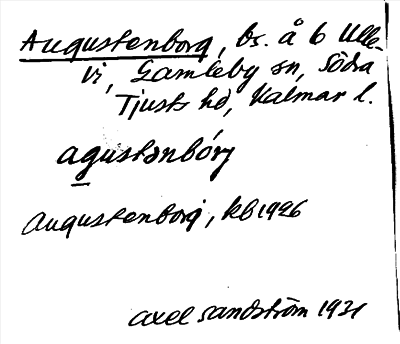 Augustenborg, bs. å 6 Ulle-
vi, Gamleby sn, Södra
Tjusts hd, Kalmar l.
agustənbórj
Augustenborg, kb 1926
Axel Sandström 1931